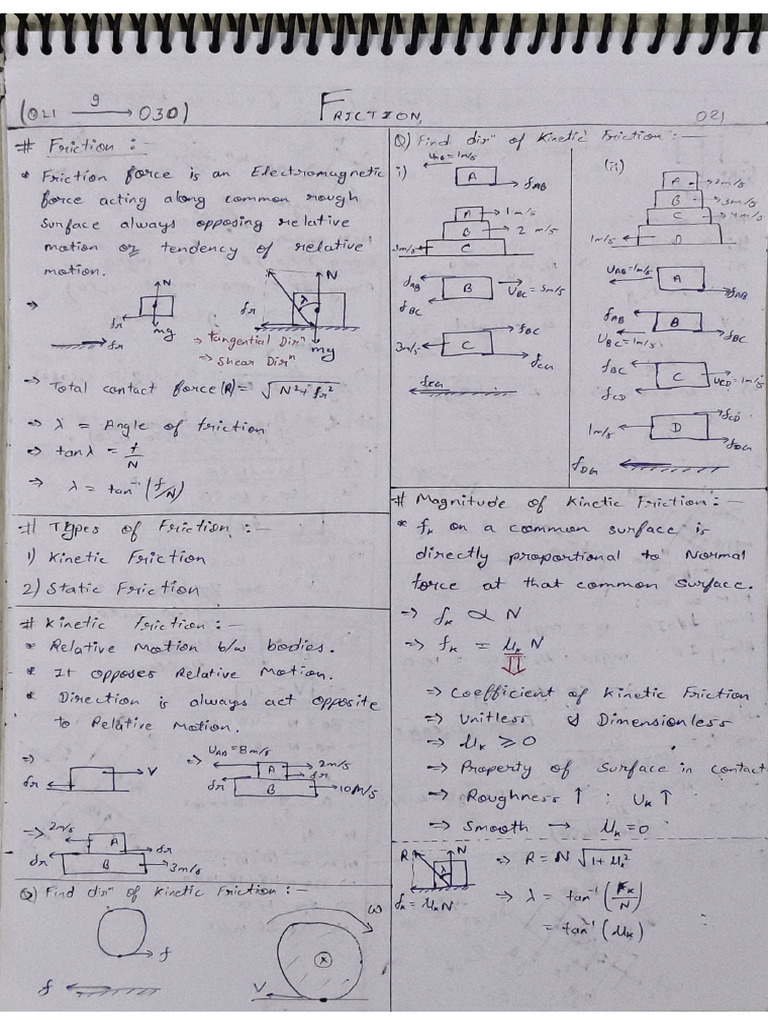 (021 9→ 030)
FRICTION
021
# Friction :-
* Friction force is an Electromagnetic
force acting along common rough
surface always opposing relative
motion or tendency of relative
motion.
⇒
N
fr
mg
fr
N
λ
fr
mg
→ tangential Dirⁿ
→ shear Dirⁿ
→ Total contact force(R) = √N²+fr²
⇒ λ = Angle of friction
⇒ tanλ = f/N
⇒ λ = tan⁻¹(f/N)
# Types of Friction :-
1) Kinetic Friction
2) Static Friction
# Kinetic Friction :-
* Relative Motion b/w bodies.
* It opposes Relative Motion.
* Direction is always act opposite
to Relative Motion.
⇒
V
fr
⇒ UAB = 8m/s
2m/s
A
fr
fr
B
10m/s
⇒ 2m/s
A
fr
fr
B
3m/s
Q) Find dirⁿ of Kinetic Friction :-
f
f
ω
V
Q) Find dirⁿ of Kinetic Friction :-
i)
UAB = 1m/s
A
fAB
A
1m/s
B
2 m/s
3m/s
C
fAB
B
UBC = 5m/s
fBC
fBC
3m/s
C
fCG
fCG
(ii)
A
2m/s
B
3m/s
C
4m/s
1m/s
D
UAB = 1m/s
A
fAB
fAB
B
fBC
UBC = 1m/s
fBC
C
UCD = 1m/s
fCD
fCD
1m/s
D
fDG
fDG
# Magnitude of Kinetic Friction :-
* fk on a common surface is
directly proportional to Normal
force at that common surface.
⇒ fk ∝ N
⇒ fk = μk N
⇒ Coefficient of Kinetic Friction
⇒ Unitless & Dimensionless
⇒ μk ≥ 0
⇒ Property of surface in contact
⇒ Roughness ↑ : Uk ↑
⇒ Smooth → μk = 0
R
N
λ
fk = μkN
⇒ R = N √1+μk²
⇒ λ = tan⁻¹(Fk/N)
= tan⁻¹(μk)